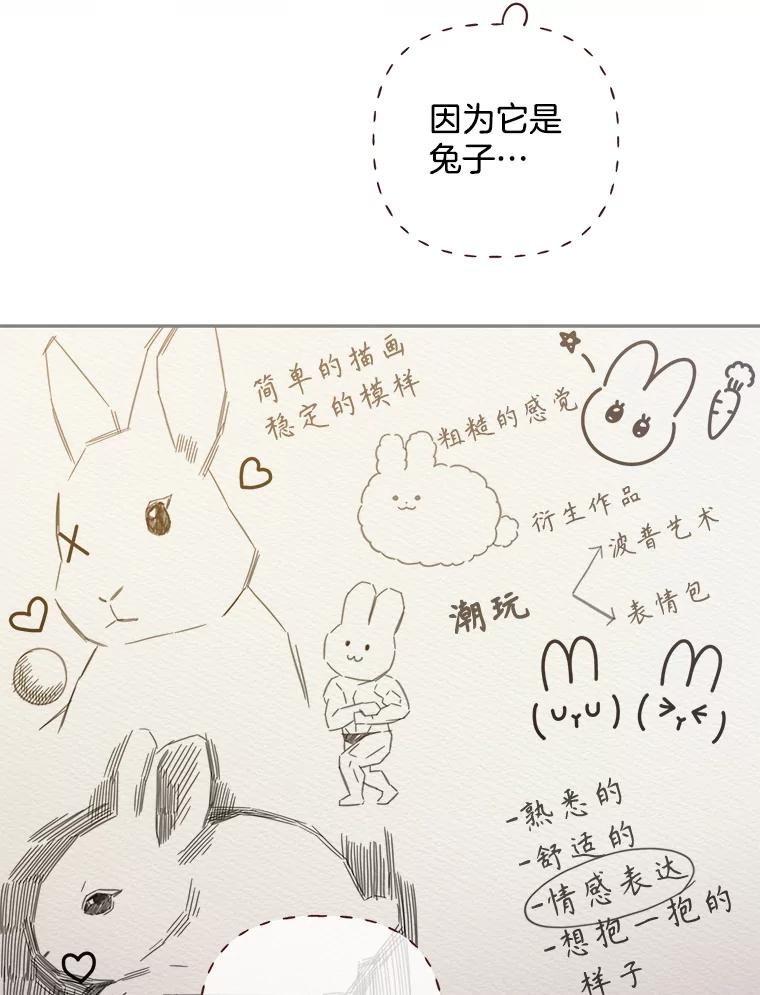 因为它是
兔子…
简单的描画
稳定的模样
粗糙的感觉
衍生作品
波普艺术
潮玩
表情包
-熟悉的
-舒适的
-情感表达
-想抱一抱的
样子